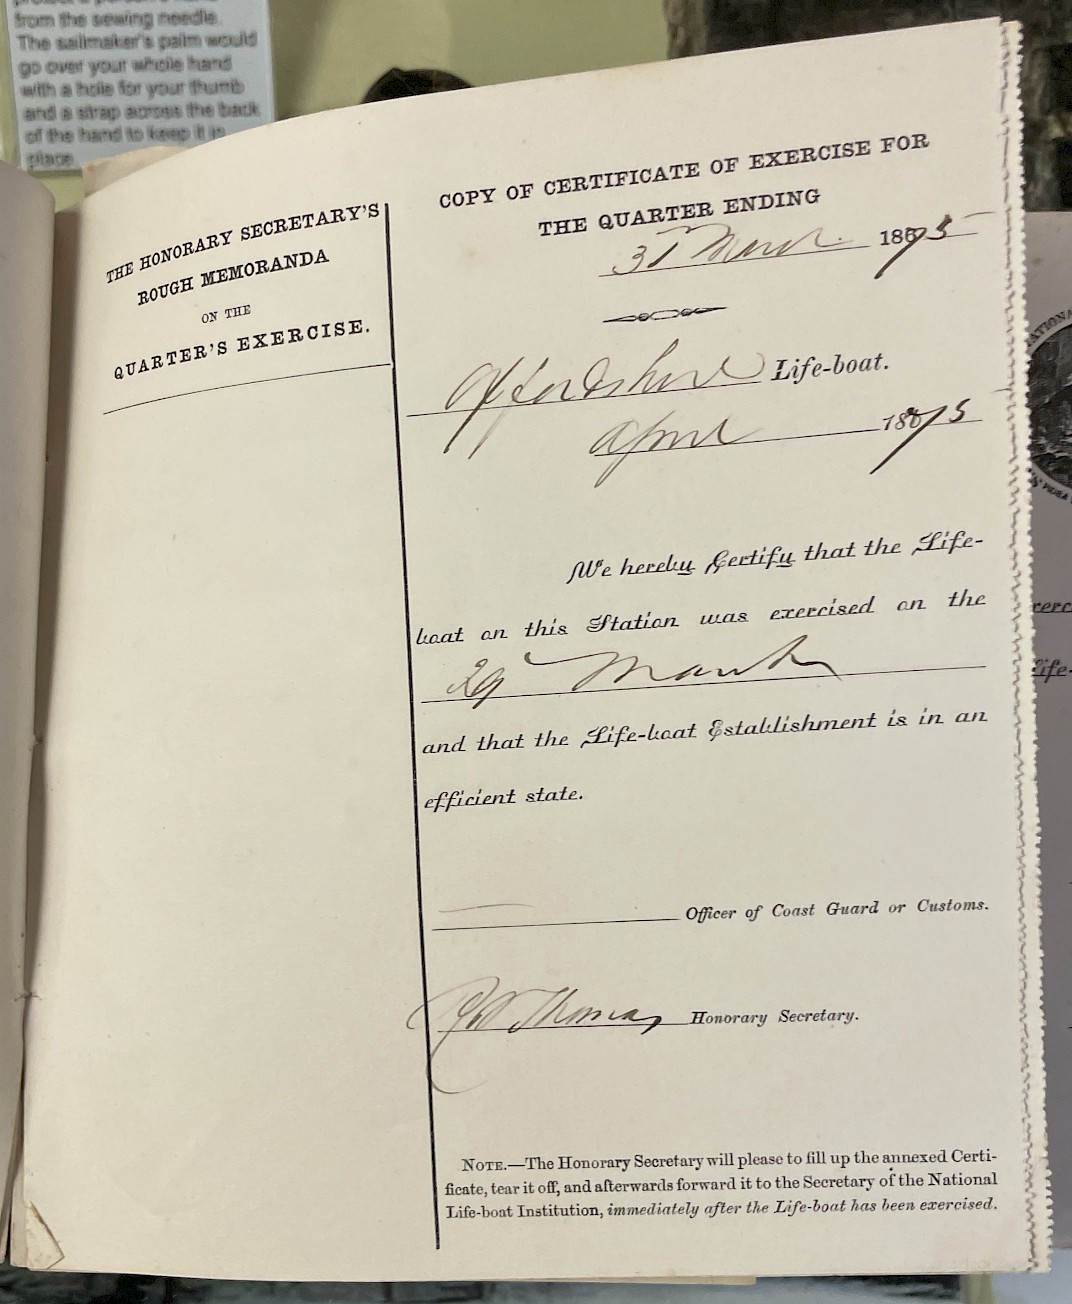 from the sewing needle.
The sailmaker's palm would
go over your whole hand
with a hole for your thumb
and a strap across the back
of the hand to keep it in
place.
THE HONORARY SECRETARY'S
ROUGH MEMORANDA
ON THE
QUARTER'S EXERCISE.
COPY OF CERTIFICATE OF EXERCISE FOR
THE QUARTER ENDING
31 March 1875
Life-boat.
April 1875
We hereby Certify that the Life-
boat on this Station was exercised on the
29 March
and that the Life-boat Establishment is in an
efficient state.
Officer of Coast Guard or Customs.
Thomas Honorary Secretary.
NOTE.—The Honorary Secretary will please to fill up the annexed Certi-
ficate, tear it off, and afterwards forward it to the Secretary of the National
Life-boat Institution, immediately after the Life-boat has been exercised.